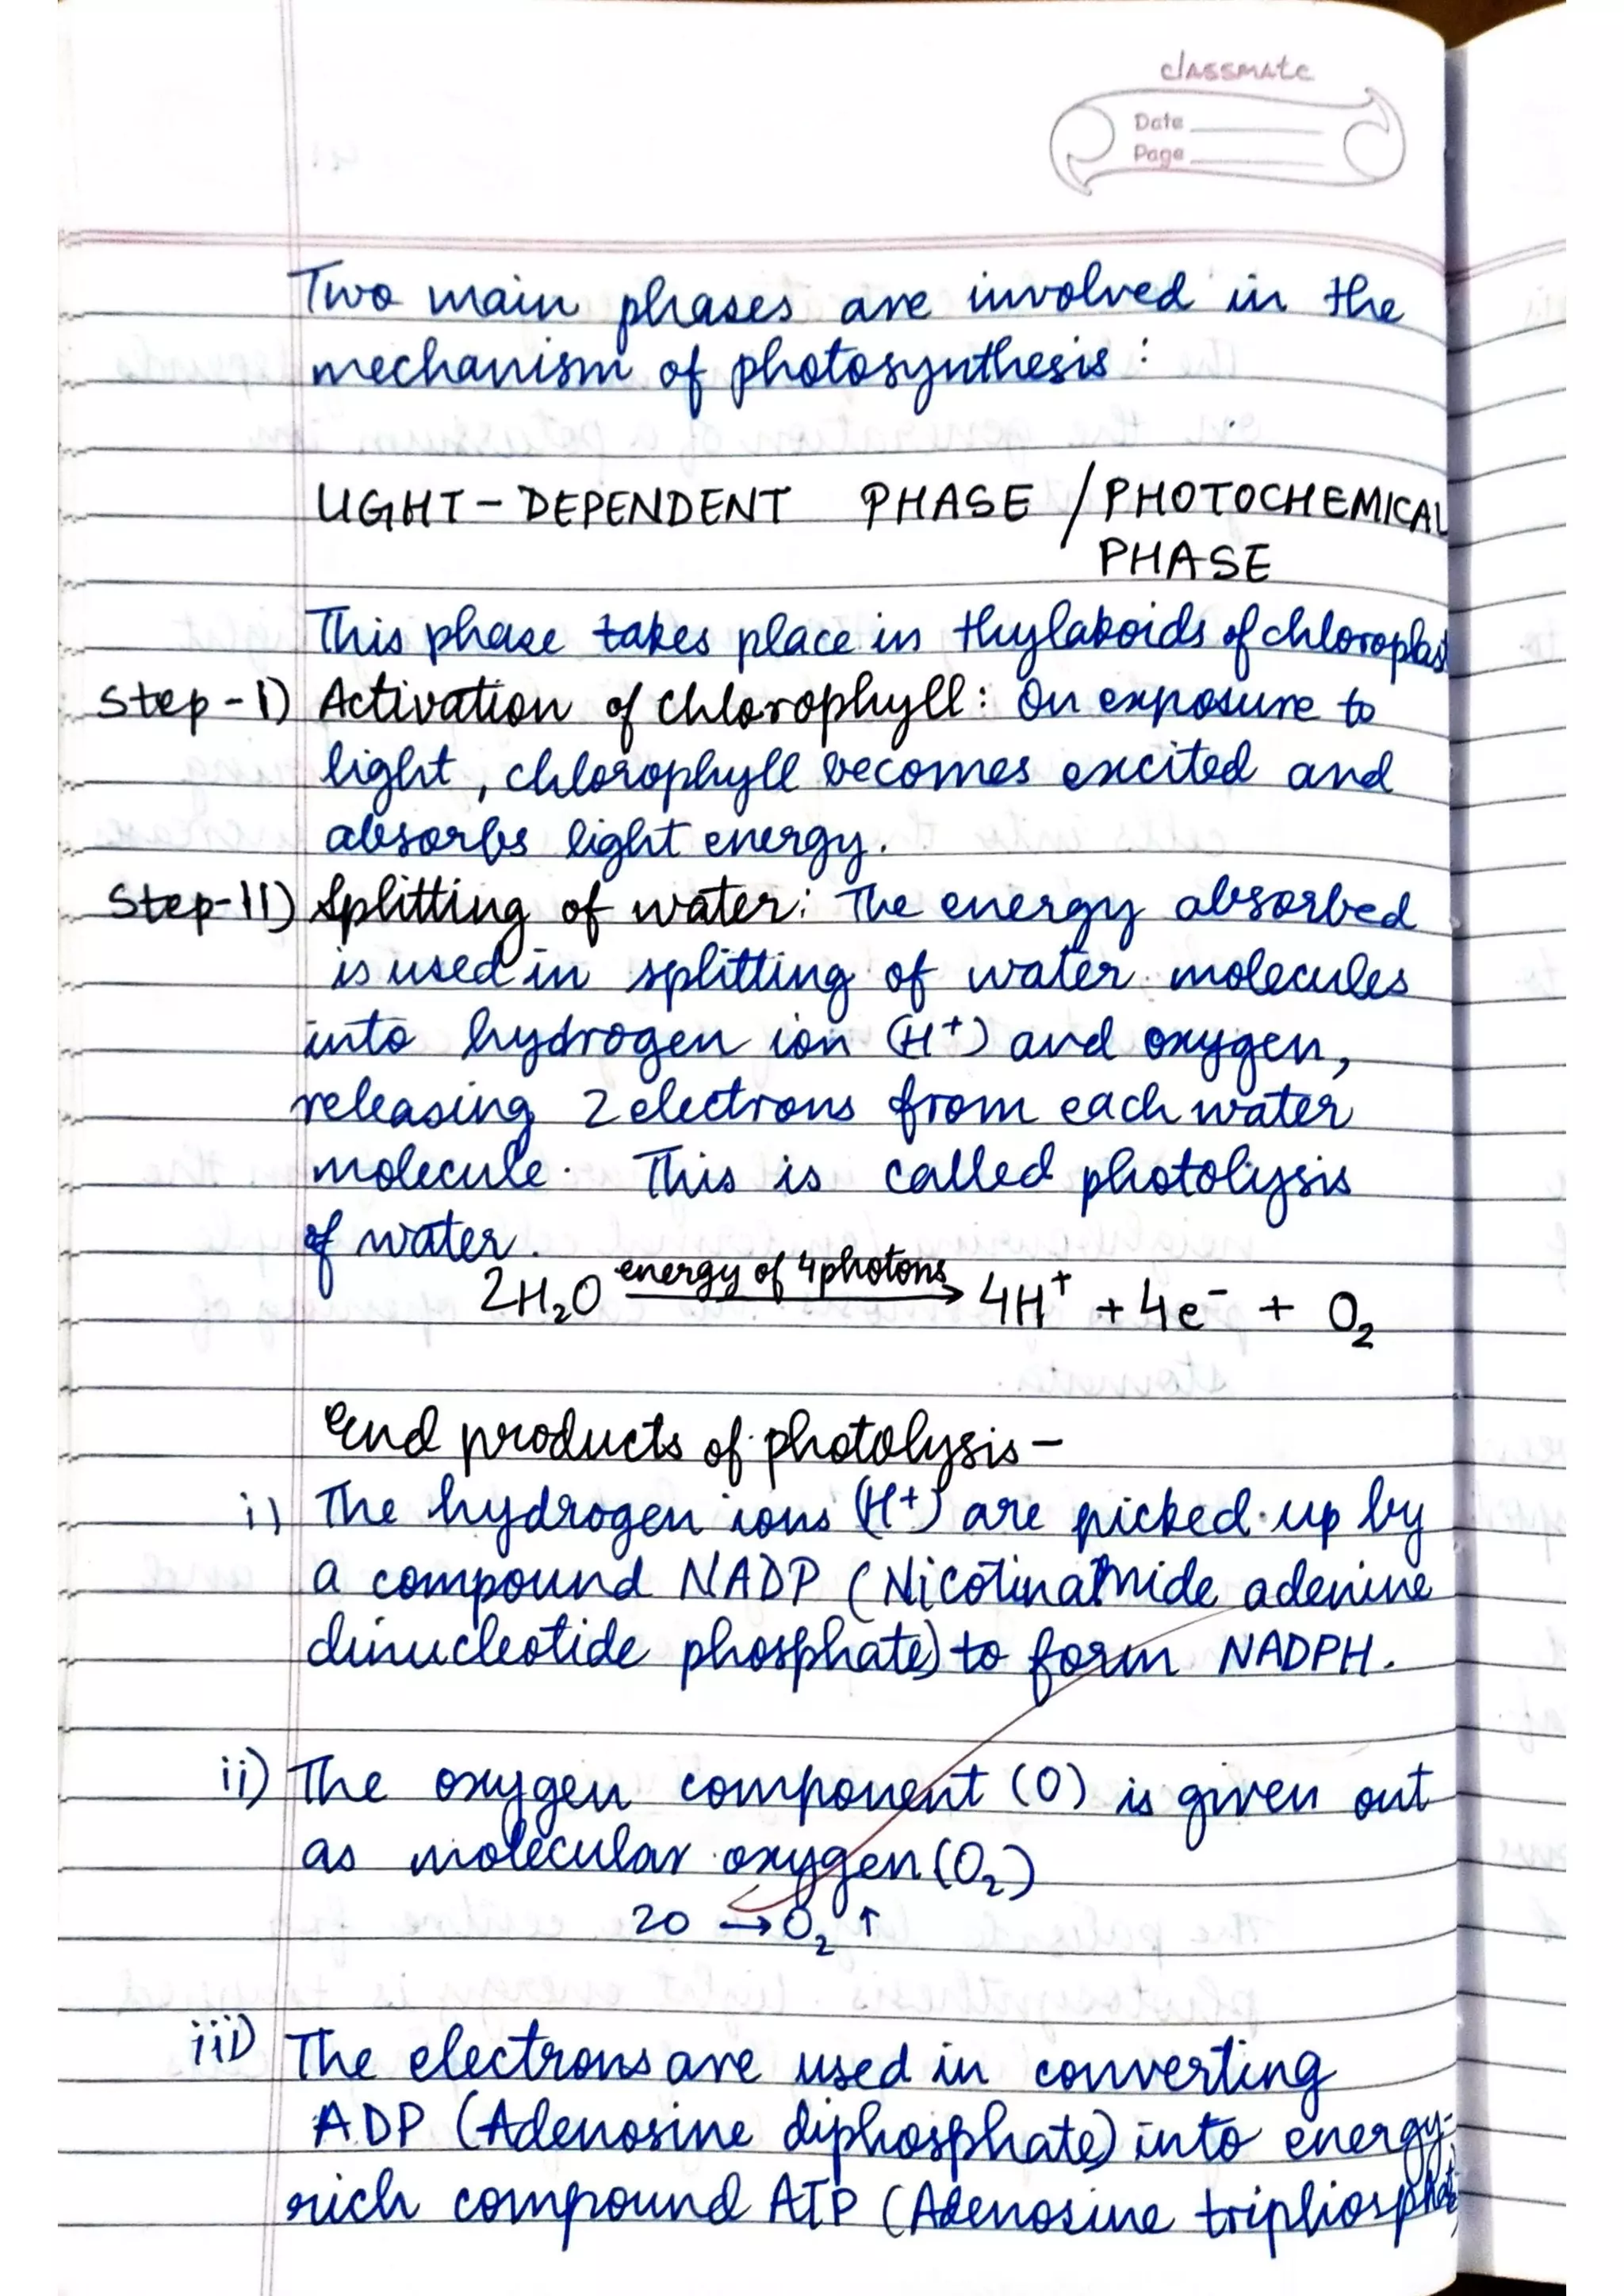 classmate
Date
Page
Two main phases are involved in the
mechanism of photosynthesis :
LIGHT-DEPENDENT PHASE / PHOTOCHEMICAL
PHASE
This phase takes place in thylakoids of chloroplast
Step-I) Activation of chlorophyll: On exposure to
light, chlorophyll becomes excited and
absorbs light energy.
Step-II) Splitting of water: The energy absorbed
is used in splitting of water molecules
into hydrogen ion (H⁺) and oxygen,
releasing 2 electrons from each water
molecule. This is called photolysis
of water.
2H₂O energy of 4 photons → 4H⁺ + 4e⁻ + O₂
End products of photolysis -
i) The hydrogen ions (H⁺) are picked up by
a compound NADP (Nicotinamide adenine
dinucleotide phosphate) to form NADPH.
ii) The oxygen component (O) is given out
as molecular oxygen (O₂)
2O → O₂ ↑
iii) The electrons are used in converting
ADP (Adenosine diphosphate) into energy-
rich compound ATP (Adenosine triphosphate)